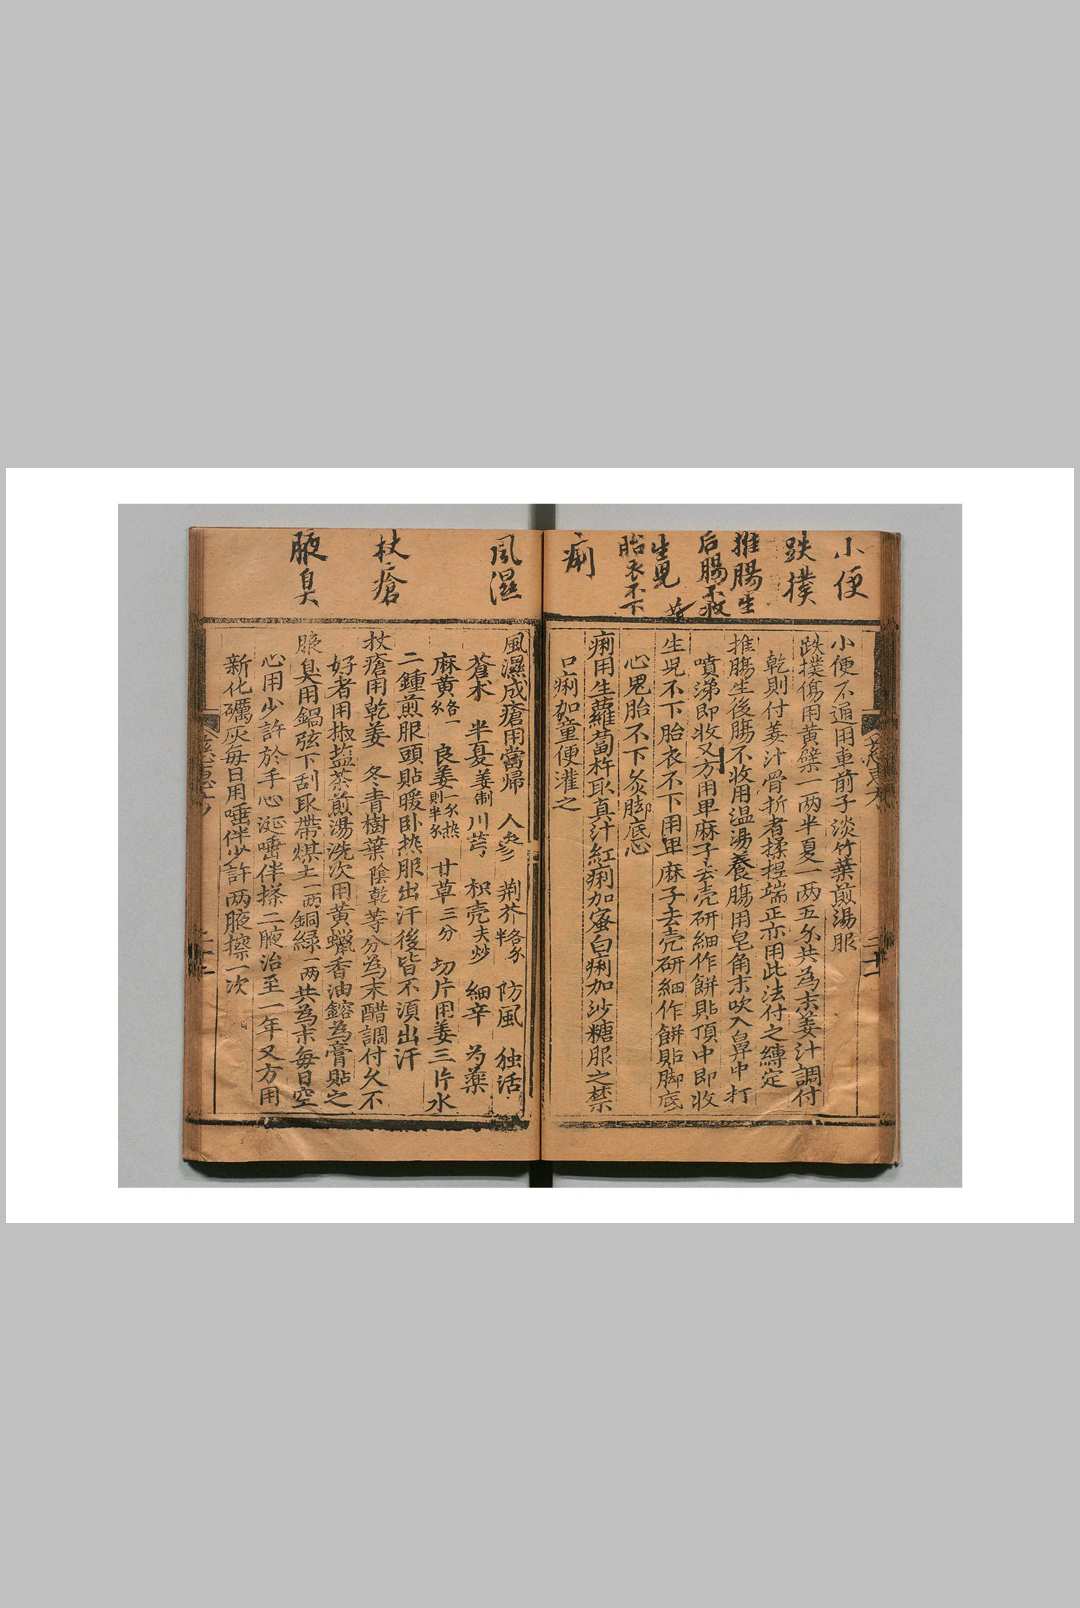 小便
跌撲
推腸生
后腸不收
生児
胎衣不下
痢
小便不通用車前子淡竹葉煎湯服
跌撲傷用黃檗一两半夏一两五分共為末姜汁調付
乾則付姜汁骨折者揉捏端正亦用此法付之縛定
推腸生後腸不收用温湯養腸用皂角末吹入鼻中打
噴涕即收又方用萆麻子去壳研細作餅貼頂中即收
生児不下胎衣不下用萆麻子去壳研細作餅貼脚底
心鬼胎不下灸脚底心
痢用生蘿蔔杵取真汁紅痢加蜜白痢加沙糖服之禁
口痢加童便灌之
風濕
杖瘡
腋臭
風濕成瘡用當歸 人參 荊芥各半分 防風 独活
蒼术 半夏姜制 川芎 枳壳夫炒 細辛 芍藥
麻黄各一分 良姜一分热則半分 甘草三分 切片用姜三片水
二鍾煎服頭貼暖卧热服出汗後皆不須出汗
杖瘡用乾姜 冬青樹葉陰乾等分為末醋調付久不
好者用椒盐茶煎湯洗次用黃蠟香油鎔為膏貼之
腋臭用鍋弦下刮取帶煤土一两銅緑一两共為末每日空
心用少許於手心涎唾伴搽二腋治至一年又方用
新化礪灰每日用唾伴少許两腋擦一次